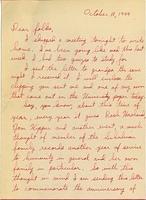 October 11, 1944
Dear folks,
I skipped a meeting tonight to write
home. I've been going like mad this last
week & had two quizzes to study for.
I sent the letter to grandpa the same
night I received it. I will enclose the
clipping you sent me and one of my own
that came out in the
Say, you know about this time of
year, every year it gives Rosh Hashana,
Yom Kippur and another event, a
thought of member of the
family records another year of service
to humanity in general and her own
family in particular. So with this
thought in mind I am sending this letter
to commemorate the anniversary of